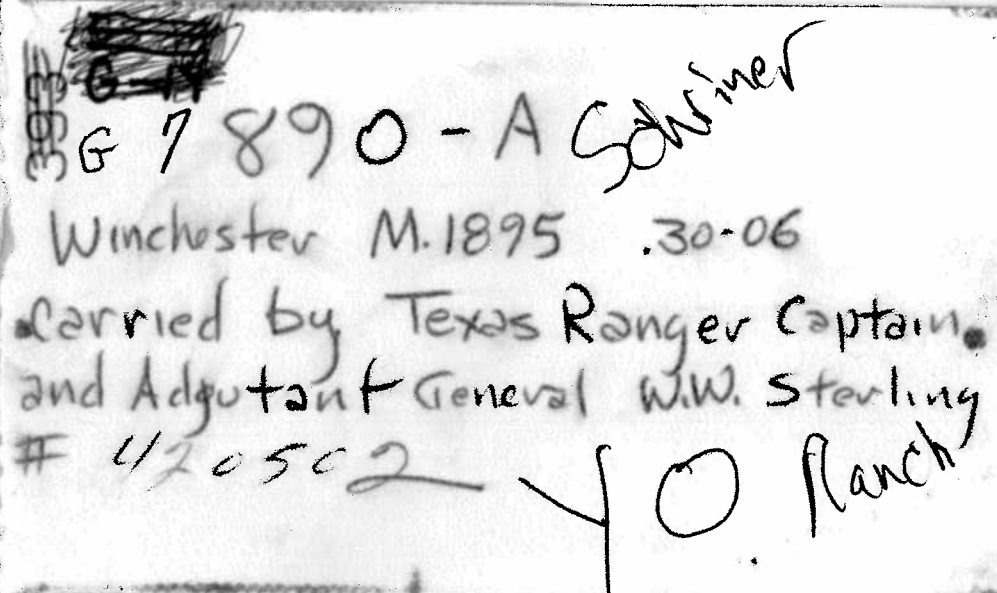 G-N
3393
G 7890-A Schriner
Winchester M.1895 .30-06
Carried by Texas Ranger Captain
and Adgutant General W.W. Sterling
# 420502
YO Ranch